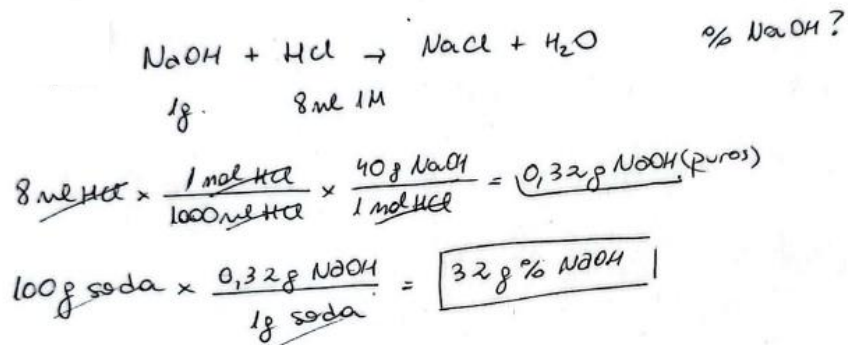 NaOH + HCl → NaCl + H₂O % NaOH?
1g. 8ml 1M
8ml HCl × 1 mol HCl / 1000 ml HCl × 40 g NaOH / 1 mol HCl = 0,32 g NaOH (puros)
100 g soda × 0,32 g NaOH / 1 g soda = 32 g % NaOH